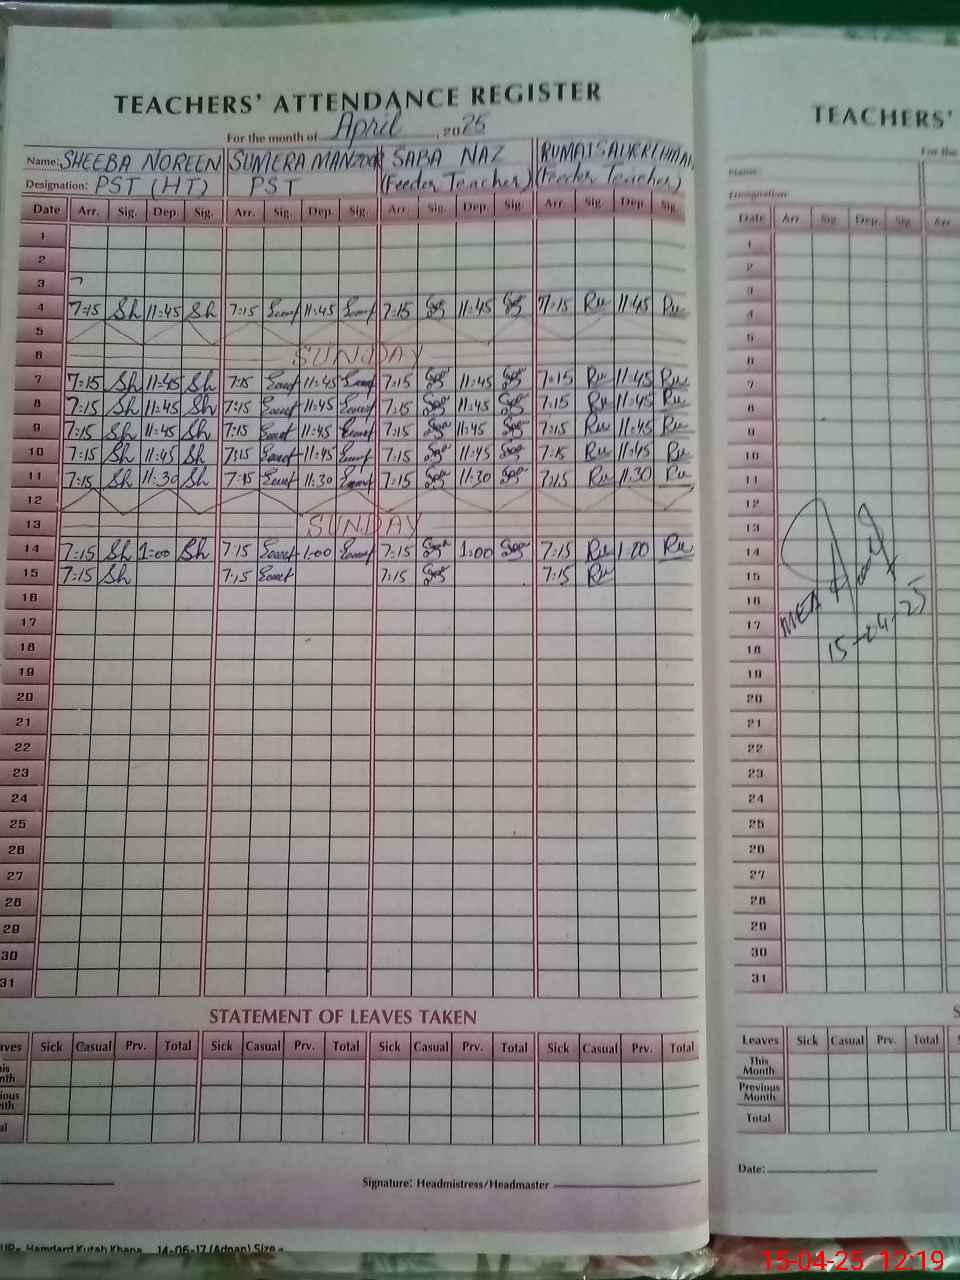 TEACHERS' ATTENDANCE REGISTER
For the month of April, 2025
Name: SHEEBA NOREEN SUMERA MANZOOR SABA NAZ
Designation: PST (HT) PST (Feeder Teacher) (Feeder Teacher)
Date Arr. Sig. Dep. Sig. Arr. Sig. Dep. Sig. Arr Sig. Dep. Sig. Arr Sig. Dep. Sig.
1
2
3
4 7:15 Sh 11:45 Sh 7:15 11:45 7:15 11:45 7:15 Ru 11:45 Ru
5
6 SUNDAY
7 7:15 Sh 11:45 Sh 7:15 11:45 7:15 11:45 7:15 Ru 11:45 Ru
8 7:15 Sh 11:45 Sh 7:15 11:45 7:15 11:45 7:15 Ru 11:45 Ru
9 7:15 Sh 11:45 Sh 7:15 11:45 7:15 11:45 7:15 Ru 11:45 Ru
10 7:15 Sh 11:45 Sh 7:15 11:45 7:15 11:45 7:15 Ru 11:45 Ru
11 7:15 Sh 11:30 Sh 7:15 11:30 7:15 11:30 7:15 Ru 11:30 Ru
12
13 SUNDAY
14 7:15 Sh 1:00 Sh 7:15 1:00 7:15 1:00 7:15 Ru 1:00 Ru
15 7:15 Sh 7:15 7:15 7:15 Ru
16
17
18
19
20
21
22
23
24
25
26
27
28
29
30
31
STATEMENT OF LEAVES TAKEN
aves Sick Casual Prv. Total Sick Casual Prv. Total Sick Casual Prv. Total Sick Casual Prv. Total
is
nth
ious
nth
al
Signature: Headmistress/Headmaster
Hamdard Kutab Khana 14-06-17 (Adnan) Size
TEACHERS'
For the
Name:
Designation:
Date Arr Sig. Dep. Sig. Arr
1
2
3
4
5
6
7
8
9
10
11
12
13
14
15
16
17
18
19
20
21
22
23
24
25
26
27
28
29
30
31
MEA
15-04-25
S
Leaves Sick Casual Prv. Total Sick
This
Month
Previous
Month
Total
Date:
15-04-25 12:19